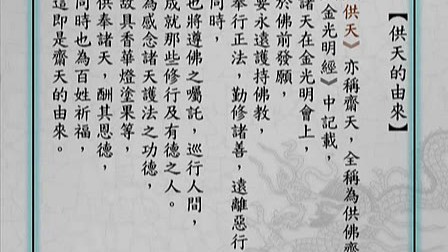 【供天的由來】
《供天》亦稱齋天，全稱為供佛齋
《金光明經》中記載，
諸天在金光明會上，
於佛前發願，
要永遠護持佛教，
奉行正法，勤修諸善，遠離惡行
同時，
也將遵佛之囑託，巡行人間，
成就那些修行及有德之人。
為感念諸天護法之功德，
故具香華燈塗果等，
供奉諸天，酬其恩德，
同時也為百姓祈福，
這即是齋天的由來。